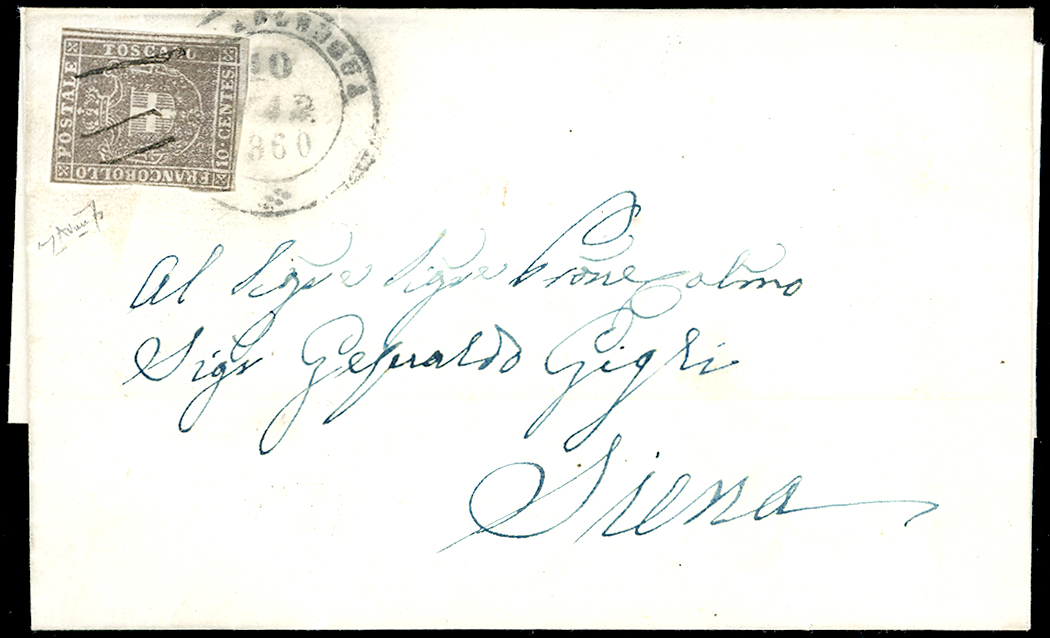 TOSCANO
POSTALE
10 · CENTES
FRANCOBOLLO
10
MAR
1860
Al Sigre Sigre Prone Colmo
Sigr Gesualdo Gigli
Siena